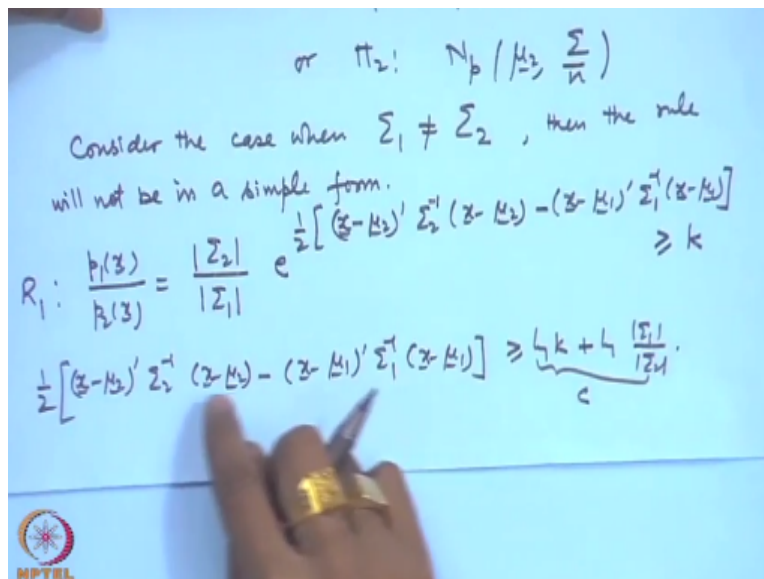 or Π₂: Nₚ(μ₂, Σ/n)
Consider the case when Σ₁ ≠ Σ₂, then the rule
will not be in a simple form.
R₁: p₁(x)/p₂(x) = |Σ₂|/|Σ₁| e^{½[(x-μ₂)' Σ₂⁻¹ (x-μ₂) - (x-μ₁)' Σ₁⁻¹ (x-μ₁)]} ≥ k
½[(x-μ₂)' Σ₂⁻¹ (x-μ₂) - (x-μ₁)' Σ₁⁻¹ (x-μ₁)] ≥ ln k + ln |Σ₁|/|Σ₂|.
c
NPTEL